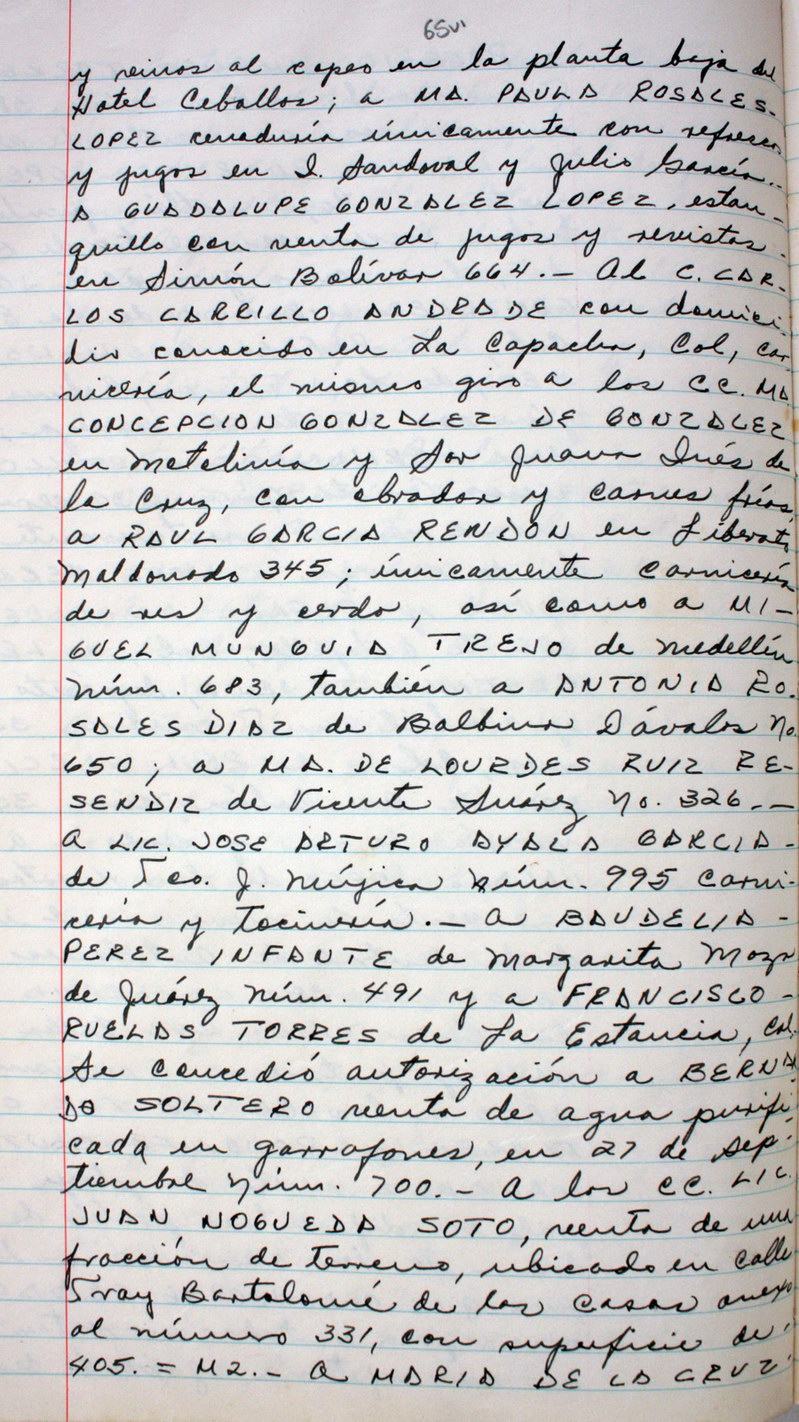 65vi
y vinos al copeo en la planta baja del
Hotel Ceballos; a MA. PAULA ROSALES-
LOPEZ cenaduría únicamente con refrescos
y jugos en I. Sandoval y Julio García.-
A GUADALUPE GONZALEZ LOPEZ, estan-
quillo con venta de jugos y revistas-
en Simón Bolívar 664.- Al C. CAR-
LOS CARRILLO ANDRADE con domici-
lio conocido en La Capacha, Col, car-
nicería, el mismo giro a los CC. MA.
CONCEPCION GONZALEZ DE GONZALEZ
en Motolinía y Sor Juana Inés de
la Cruz, con obrador y carnes frías,
a RAUL GARCIA RENDON en Liberato
Maldonado 345; únicamente carnicería
de res y cerdo, así como a MI-
GUEL MUNGUIA TREJO de Medellín
núm. 683, también a ANTONIA RO-
SALES DIAZ de Balbino Dávalos No.
650; a MA. DE LOURDES RUIZ RE-
SENDIZ de Vicente Suárez No. 326.--
A LIC. JOSE ARTURO AYALA GARCIA-
de Fco. J. Múgica núm. 995 carni-
cería y tocinería.- A BAUDELIA-
PEREZ INFANTE de Margarita Maza
de Juárez núm. 491 y a FRANCISCO-
RUELAS TORRES de La Estancia, Col.
Se concedió autorización a BERNAR
DO SOLTERO venta de agua purifi-
cada en garrafones, en 27 de Sep-
tiembre núm. 700.- A los CC. LIC.
JUAN NOGUEDA SOTO, venta de una
fracción de terreno, ubicado en calle
Fray Bartolomé de las Casas anexo
al número 331, con superficie de
405.= M2.- A MARIA DE LA CRUZ